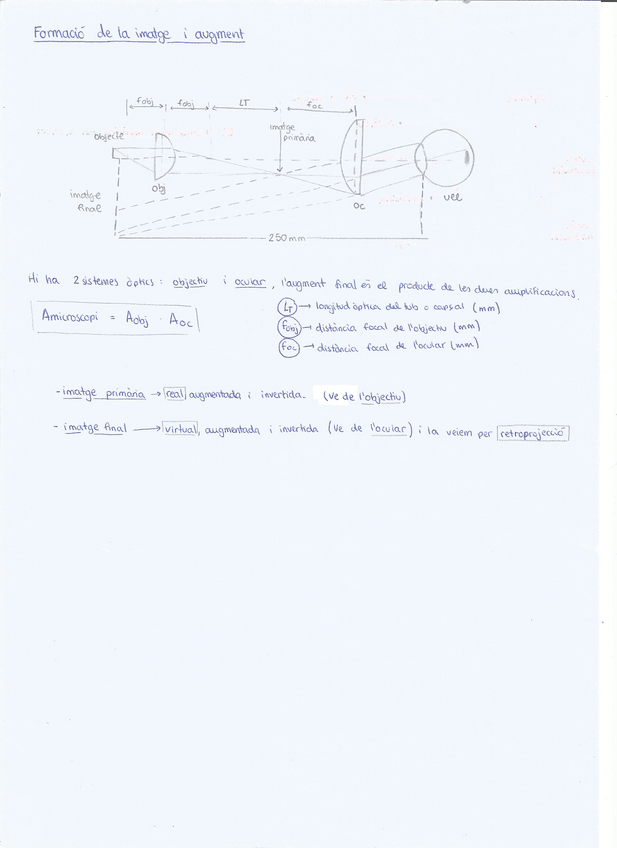 Formació de la imatge i augment
fobj fobj LT foc
objecte
imatge
primària
obj
oc
ull
imatge
final
250 mm
Hi ha 2 sistemes òptics: objectiu i ocular, l'augment final és el producte de les dues amplificacions.
Amicroscopi = Aobj · Aoc
LT → longitud òptica del tub o capsal (mm)
fobj → distància focal de l'objectiu (mm)
foc → distància focal de l'ocular (mm)
- imatge primària → real augmentada i invertida. (ve de l'objectiu)
- imatge final → virtual, augmentada i invertida (ve de l'ocular) i la veiem per retroprojecció